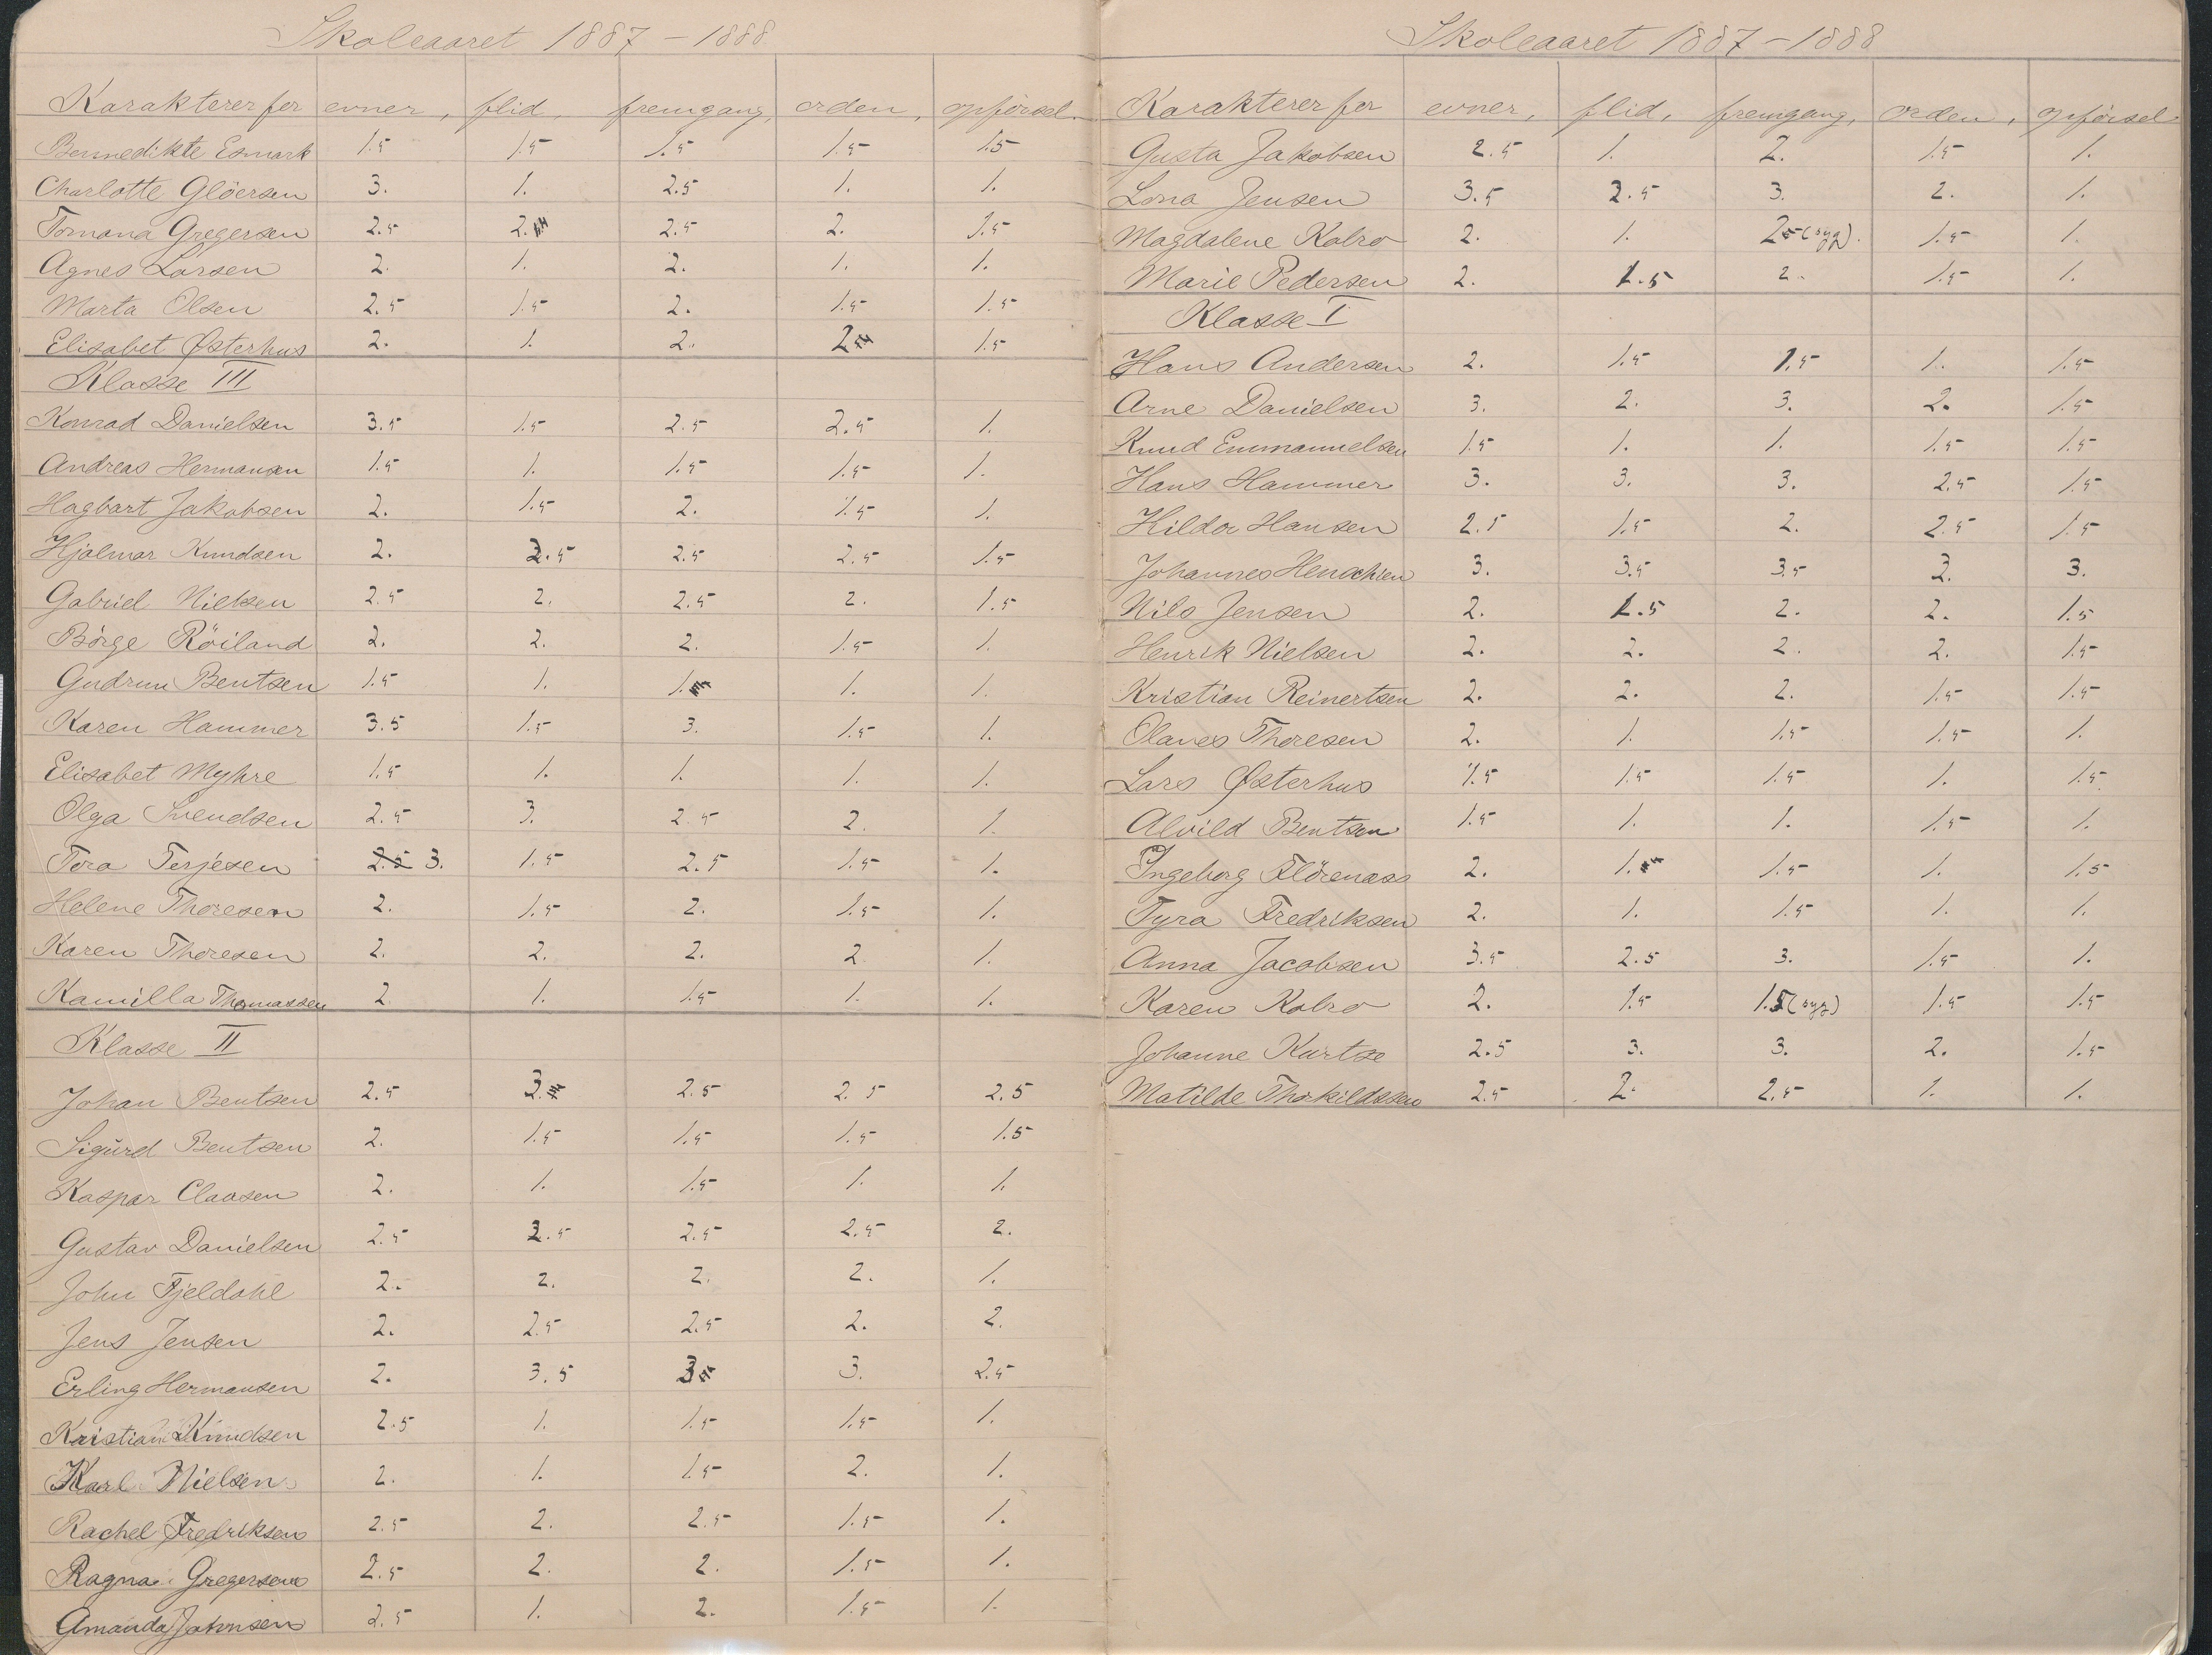 Skoleaaret 1887 – 1888
Karakterer for evner, flid, fremgang, orden, opførsel.
Bennedikte Esmark 1.5 1.5 1.5 1.5 1.5
Charlotte Glöersen 3. 1. 2.5 1. 1.
Tomana Gregersen 2.5 2. 2.5 2. 1.5
Agnes Larsen 2. 1. 2. 1. 1.
Marta Olsen 2.5 1.5 2. 1.5 1.5
Elisabet Østerhus 2. 1. 2. 2 1.5
Klasse III
Konrad Danielsen 3.5 1.5 2.5 2.5 1.
Andreas Hermansen 1.5 1. 1.5 1.5 1.
Hagbart Jakobsen 2. 1.5 2. 1.5 1.
Hjalmar Knudsen 2. 2.5 2.5 2.5 1.5
Gabriel Nielsen 2.5 2. 2.5 2. 1.5
Börge Röiland 2. 2. 2. 1.5 1.
Gudrun Bentsen 1.5 1. 1. 1. 1.
Karen Hammer 3.5 1.5 3. 1.5 1.
Elisabet Myhre 1.5 1. 1. 1. 1.
Olga Svendsen 2.5 3. 2.5 2. 1.
Tora Terjesen 2.5 3. 1.5 2.5 1.5 1.
Helene Thoresen 2. 1.5 2. 1.5 1.
Karen Thoresen 2. 2. 2. 2. 1.
Kamilla Thomassen 2. 1. 1.5 1. 1.
Klasse II
Johan Bentsen 2.5 3. 2.5 2.5 2.5
Sigurd Bentsen 2. 1.5 1.5 1.5 1.5
Kaspar Claasen 2. 1. 1.5 1. 1.
Gustav Danielsen 2.5 2.5 2.5 2.5 2.
John Fjeldahl 2. 2. 2. 2. 1.
Jens Jensen 2. 2.5 2.5 2. 2.
Erling Hermansen 2. 3.5 3 3. 2.5
Kristian Knudsen 2.5 1. 1.5 1.5 1.
Karl Nielsen 2. 1. 1.5 2. 1.
Rachel Fredriksen 2.5 2. 2.5 1.5 1.
Ragna Gregersen 2.5 2. 2. 1.5 1.
Amanda 2.5 1. 2. 1.5 1.
Skoleaaret 1887 – 1888
Karakterer for evner, flid, fremgang, orden, opførsel.
Gusta Jakobsen 2.5 1. 2. 1.5 1.
Lona Jensen 3.5 2.5 3. 2. 1.
Magdalene Kalrø 2. 1. 2 (syg). 1.5 1.
Marie Pedersen 2. 1.5 2. 1.5 1.
Klasse I
Hans Andersen 2. 1.5 1.5 1. 1.5
Arne Danielsen 3. 2. 3. 2. 1.5
Knud Emmanuelsen 1.5 1. 1. 1.5 1.5
Hans Hammer 3. 3. 3. 2.5 1.5
Hildor Hansen 2.5 1.5 2. 2.5 1.5
Johannes 3. 3.5 3.5 3. 3.
Nils Jensen 2. 1.5 2. 2. 1.5
Henrik Nielsen 2. 2. 2. 2. 1.5
Kristian Reinertsen 2. 2. 2. 1.5 1.5
Olaves Thoresen 2. 1. 1.5 1.5 1.
Lars Østerhus 1.5 1.5 1.5 1. 1.5
Alvild Bentsen 1.5 1. 1. 1.5 1.
Ingeborg Flörenass 2. 1. 1.5 1. 1.5
Tyra Fredriksen 2. 1. 1.5 1. 1.
Anna Jacobsen 3.5 2.5 3. 1.5 1.
Karen Kalrø 2. 1.5 1.5 (syg) 1.5 1.5
Johanne Kurtze 2.5 3. 3. 2. 1.5
Matilde Thorkildssen 2.5 2. 2.5 1. 1.